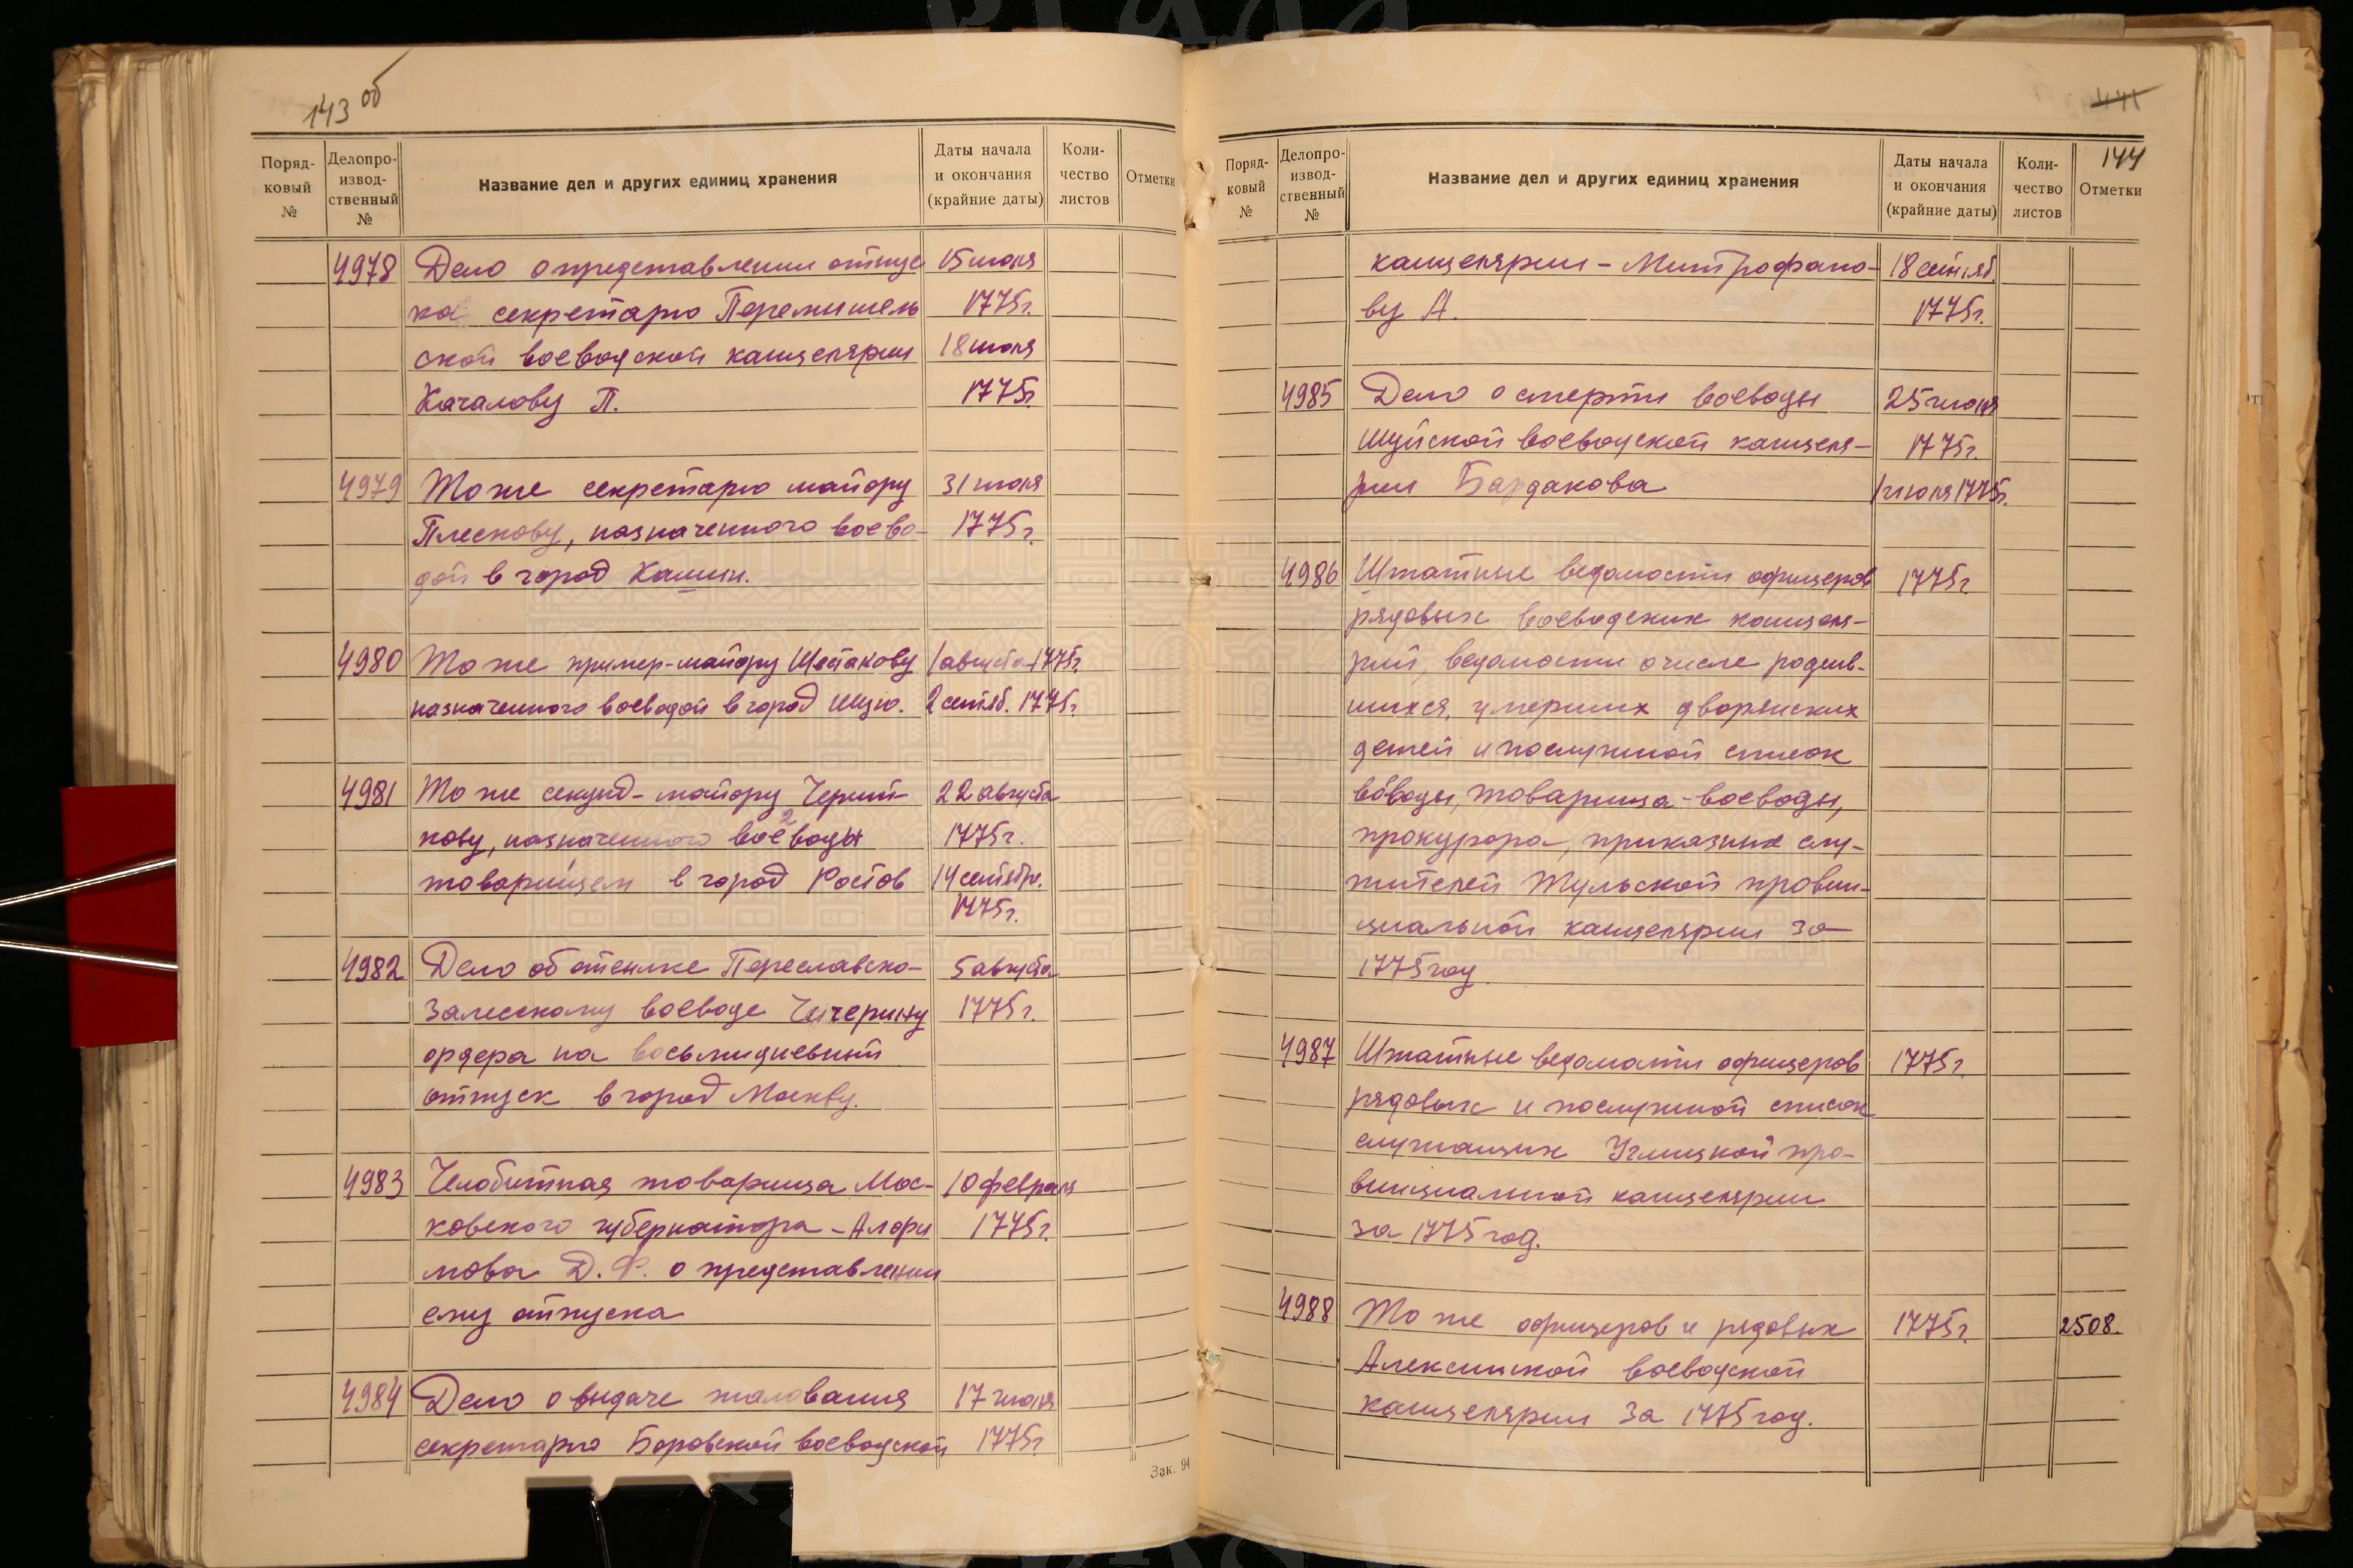 143 об
Поряд-
ковый
№
Делопро-
извод-
ственный
№
Название дел и других единиц хранения
Даты начала
и окончания
(крайние даты)
Коли-
чество
листов
Отметки
4978 Дело о представлении отпус 15 июля
ка секретарю Перемышель 1775г.
ской воеводской канцелярии 18 июля
Качалову П. 1775г.
4979 То же секретарю майору 31 июля
Плескову, назначенного воево- 1775г.
дой в город Кашин.
4980 То же пример-майору Шестакову 1 августа 1775г.
назначенного воеводой в город Шую. 2 сентяб. 1775г.
4981 То же секунд-майору Черни- 22 августа
кову, назначенного воеводы 1775г.
товарищем в город Ростов 14 сентябр.
1775г.
4982 Дело об отсылке Переславско- 5 августа
Залесскому воеводе Чичерину 1775г.
ордера на восьмидневный
отпуск в город Москву.
4983 Челобитная товарища Мос- 10 февраля
ковского губернатора - Алфи 1775г.
мова Д. Ф. о представлении
ему отпуска
4984 Дело о выдаче жалования 17 июня
секретарю Боровской воеводской 1775г
Зак. 94
144
Поряд-
ковый
№
Делопро-
извод-
ственный
№
Название дел и других единиц хранения
Даты начала
и окончания
(крайние даты)
Коли-
чество
листов
Отметки
канцелярии - Митрофано- 18 сентяб.
ву А. 1775г.
4985 Дело о смерти воеводы 25 июня
Шуйской воеводской канцеля- 1775г.
рии Бардакова 1 июля 1775г.
4986 Штатные ведомости офицеров 1775г
рядовых воеводских канцеля-
рий, ведомости о числе родив-
шихся, умерших дворянских
детей и послужной список
воводы, товарища-воеводы,
прокурора, приказных слу-
жителей Тульской провин-
циальной канцелярии за
1775 году
4987 Штатные ведомости офицеров 1775г.
рядовых и послужной список
служащих Углицкой про-
винциальной канцелярии
за 1775 год.
4988 То же офицеров и рядовых 1775г. 2508.
Алексинской воеводской
канцелярии за 1775 год.